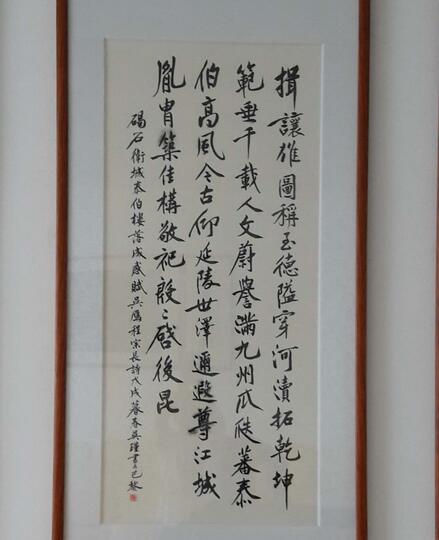 揖讓雄圖稱至德隘穿河瀆拓乾坤
範垂千載人文蔚譽滿九州瓜瓞蕃泰
伯高風今古仰延陵世澤邇遐尊江城
胤胄築佳構敬祀殷〻啓後昆
碣石衛城泰伯樓落成感賦吳鷹程宗長詩戊戌暮春吳瑾書于巴黎